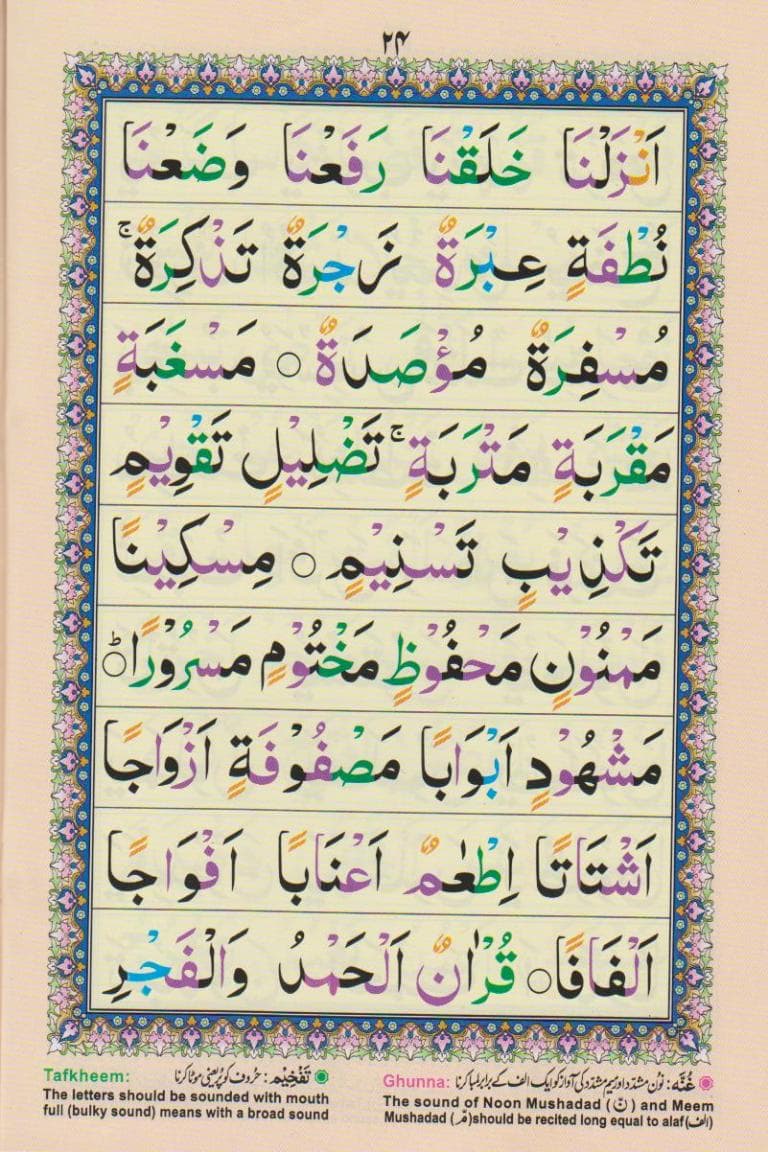 ۲۴
اَنْزَلْنَا خَلَقْنَا رَفَعْنَا وَضَعْنَا
نُطْفَةٍ عِبْرَةٌ زَجْرَةٌ تَذْكِرَةٌ ۚ
مُسْفِرَةٌ مُؤْصَدَةٌ ○ مَسْغَبَةٍ
مَقْرَبَةٍ مَتْرَبَةٍ ۚ تَضْلِيْلٍ تَقْوِيْمٍ
تَكْذِيْبٍ تَسْنِيْمٍ ○ مِسْكِيْنًا
مَمْنُوْنٍ مَحْفُوْظٍ مَخْتُوْمٍ مَسْرُوْرًا ○ؕ
مَشْهُوْدٍ اَبْوَابًا مَصْفُوْفَةٍ اَزْوَاجًا
اَشْتَاتًا اِطْعٰمٌ اَعْنَابًا اَفْوَاجًا
اَلْفَافًا ○ قُرْاٰنٌ اَلْحَمْدُ وَالْفَجْرِ
غُنَّه: نون مشدد اور میم مشدد کی آواز کو ایک الف کے برابر لمبا کرنا
Ghunna:
The sound of Noon Mushadad (نّ) and Meem
Mushadad (مّ) should be recited long equal to alaf (الف)
تَفْخِيْم: حروف کو پُر یعنی موٹا کرنا
Tafkheem:
The letters should be sounded with mouth
full (bulky sound) means with a broad sound